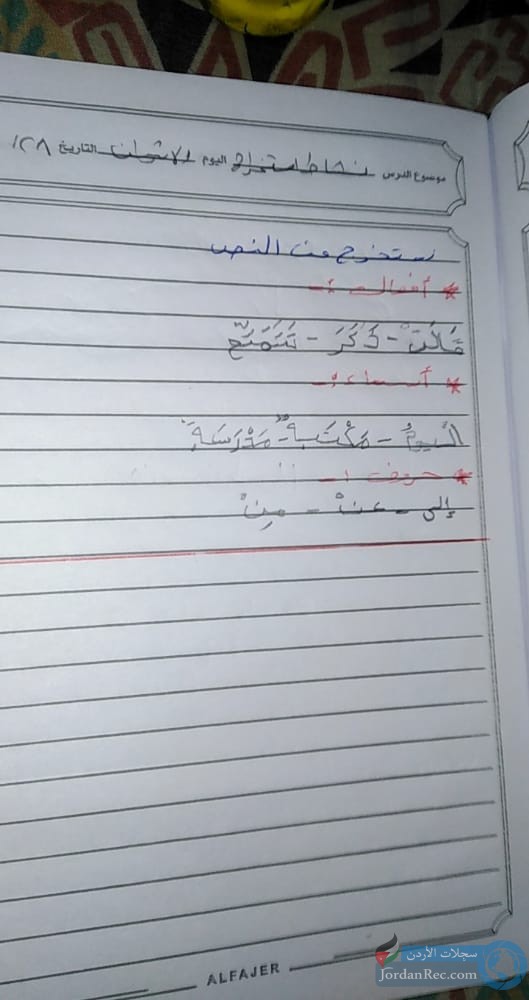 موضوع الدرس نشاط استخراج اليوم الاثنان التاريخ ١٢٨
نستخرج من النص
* أفعال :-
قالتْ - ذَكَرَ - تَتَمَتَّع
* أسماء :-
الْيومُ - مَكْتَبة - مَدْرَسَة
* حروف :-
إلى - عنْ - مِنْ
ALFAJER
سجلات الأردن
JordanRec.com